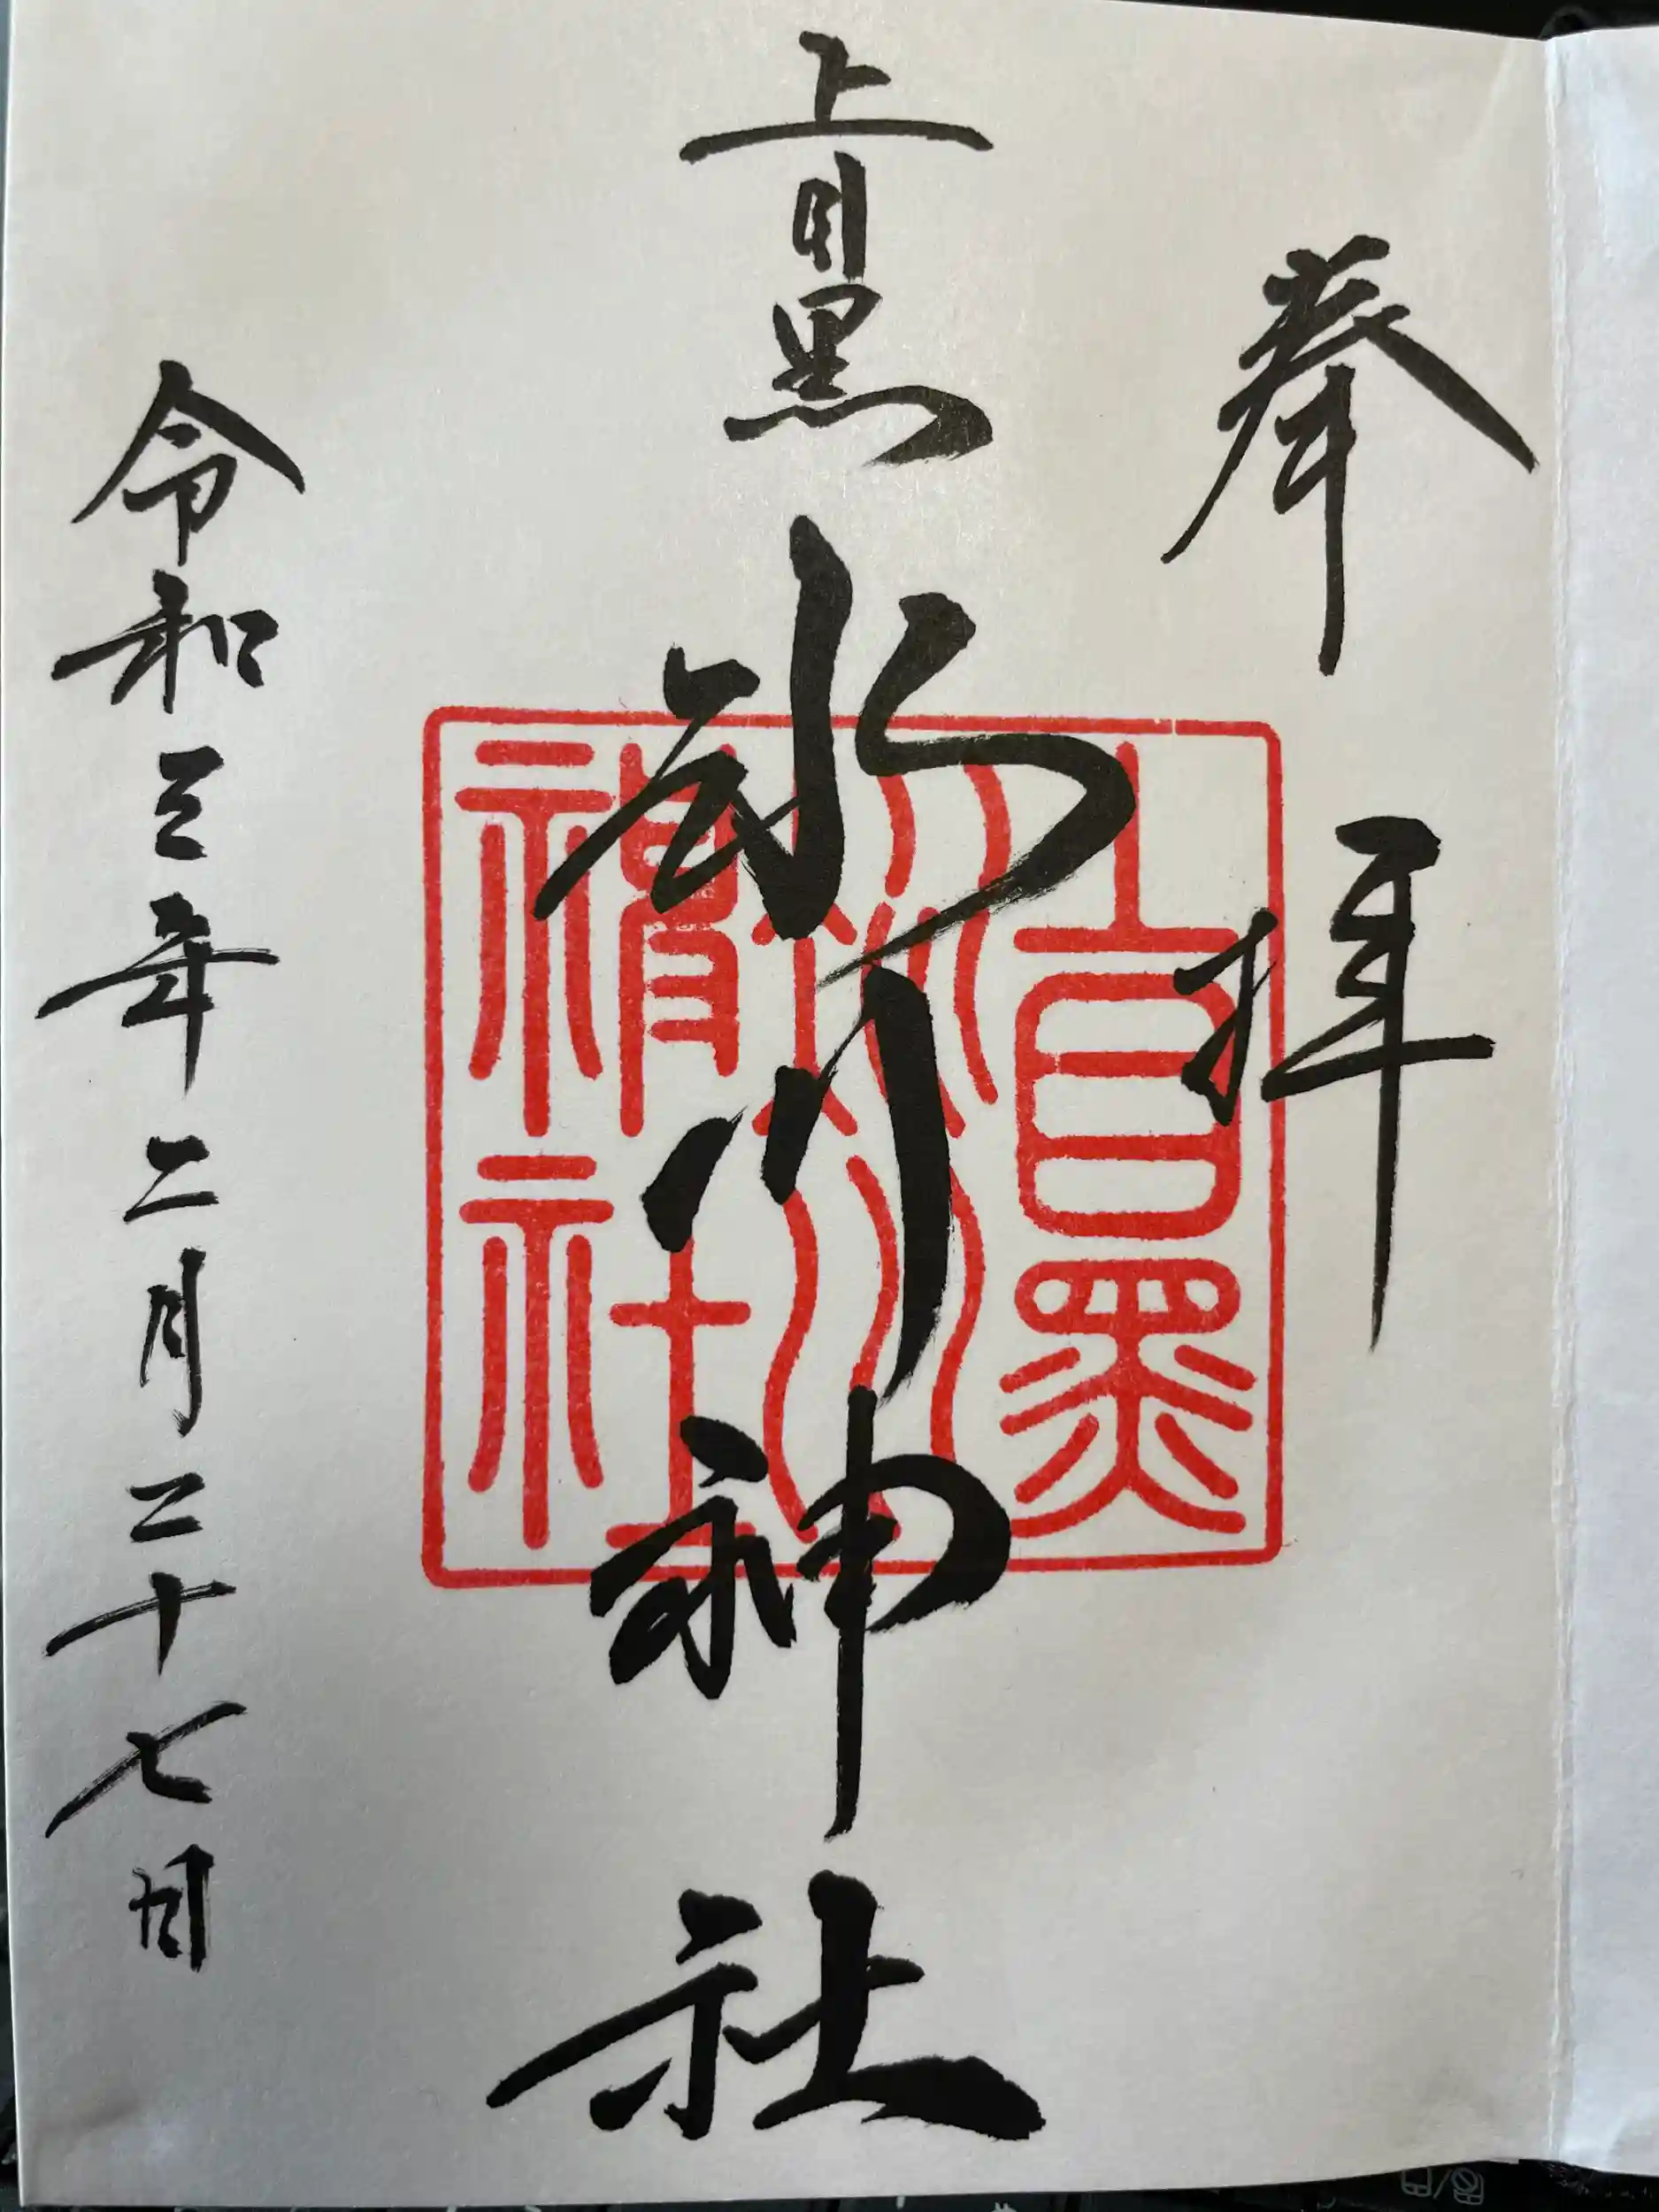 奉拝
上目黒
氷川神社
令和三年二月二十七日
上目黒
氷川
神社